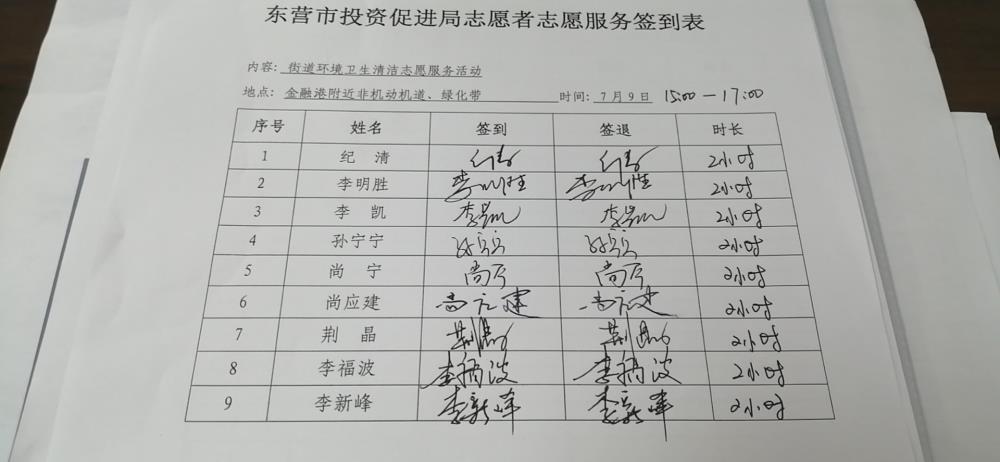 东营市投资促进局志愿者志愿服务签到表
内容：街道环境卫生清洁志愿服务活动
地点：金融港附近非机动机道、绿化带 时间：7月9日 15:00—17:00
序号 姓名 签到 签退 时长
1 纪 清 纪清 纪清 2小时
2 李明胜 李明胜 李明胜 2小时
3 李 凯 李凯 李凯 2小时
4 孙宁宁 孙宁宁 孙宁宁 2小时
5 尚 宁 尚宁 尚宁 2小时
6 尚应建 尚应建 尚应建 2小时
7 荆 晶 荆晶 荆晶 2小时
8 李福波 李福波 李福波 2小时
9 李新峰 李新峰 李新峰 2小时